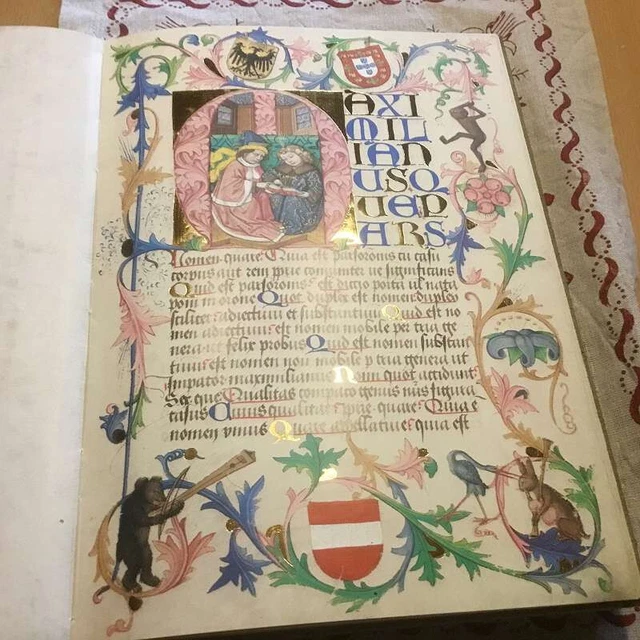 MAXI
MIL
IAN
USQ
UEP
ARS
Nomen quare Quia est parsoronis cu casu
corpus aut rem pprie comuniter ue significans
Quid est parsoronis est dictio posita ul nata
poni in orone Quot duplex est nomen duplex
scilicet adiectiuu et substantiuu Quid est no
men adiectiuu est nomen mobile per tria ge
nera ut felix probus Quid est nomen substan
tiuu est nomen non mobile p tria genera ut
Impator maximilianus quot accidunt
Sex que Qualitas compatio genus nus figura
casus Cuius qualitatis pprie quare Quia e
nomen vnius Quare appellatiue quia est